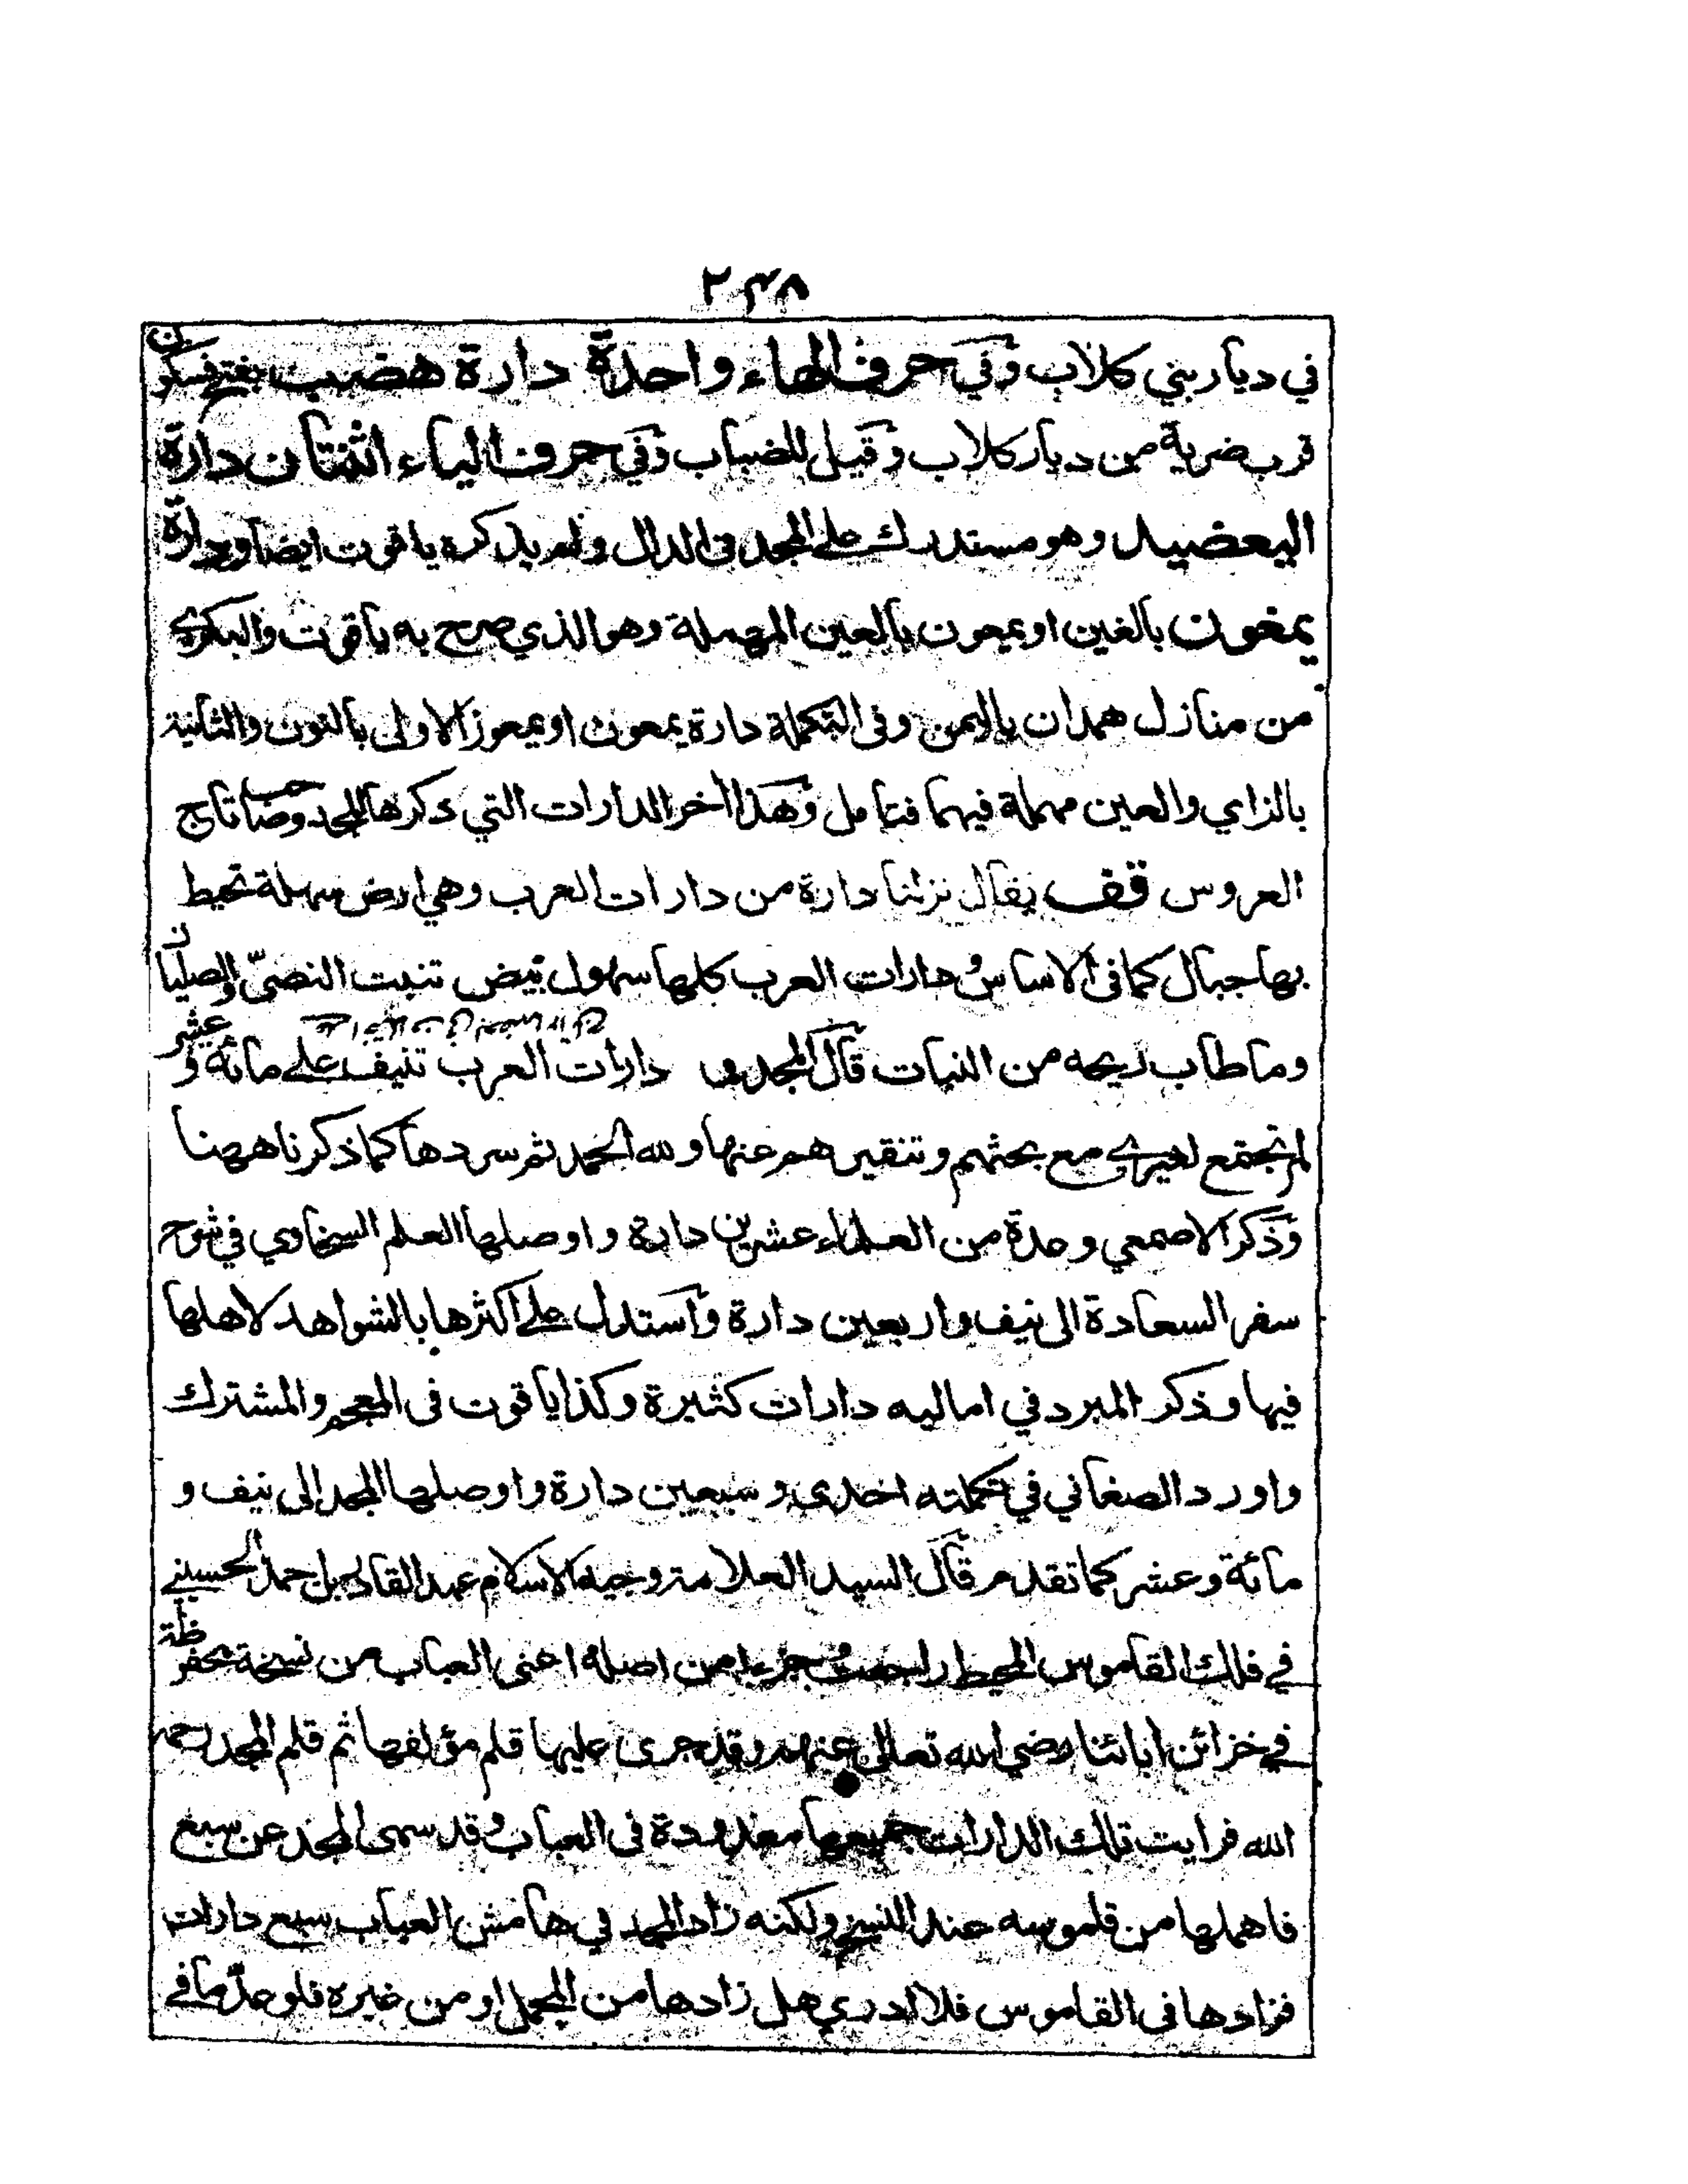 ٢٣٨
في ديار بني كلاب وفي حرف الهاء واحدة دارة هضب بفتح فسكون
قرب ضرية من ديار كلاب وقيل للضباب وفي حرف الياء اثنتان دارة
اليعضيد وهو مستدرك على المجد في الدال ولم يذكره ياقوت ايضا ودارة
يمغون بالغين او يمعون بالعين المهملة وهو الذي صرح به ياقوت والبكري
من منازل همدان باليمن وفى التكملة دارة يمعون او يمعوز الاولى بالنون والثانية
بالزاي والعين مهملة فيهما فتامل وهذا اخر الدارات التي ذكرها المجد وصاحب تاج
العروس قف يقال نزلنا دارة من دارات العرب وهي ارض سهلة تحيط
بها جبال كما فى الاساس ودارات العرب كلها سهول بيض تنبت النصيّ والصليان
وما طاب ريحه من النبات قال المجد دارات العرب تنيف على مائة وعشر
لم تجتمع لغيري مع بحثهم وتنقيرهم عنها ولله الحمد ثم سردها كما ذكرنا ههنا
وذكر الاصمعي وعدة من العلماء عشرين دارة واوصلها العلم السخاوي في شرح
سفر السعادة الى نيف واربعين دارة واستدل على اكثرها بالشواهد لاهلها
فيها وذكر المبرد في اماليه دارات كثيرة وكذا ياقوت فى المعجم والمشترك
واورد الصغاني في تكملته احدى وسبعين دارة واوصلها المجد الى نيف و
مائة وعشر كما تقدم قال السيد العلامة وجيه الاسلام عبد القادر بن احمد الحسيني
في فلك القاموس المحيط راجعت جزءا من اصله اعنى العباب من نسخة محفوظة
في خزائن ابائنا رضي الله تعالى عنهم وقد جرى عليها قلم مؤلفها ثم قلم المجد رحمه
الله فرايت تلك الدارات جميعها معدودة فى العباب وقد سمى المجد عن سبع
فاهملها من قاموسه عند النسخ ولكنه زاد المجد في هامش العباب سبع دارات
فزادها فى القاموس فلا ادري هل زادها من المجمل او من غيره فلو عدّ ما في